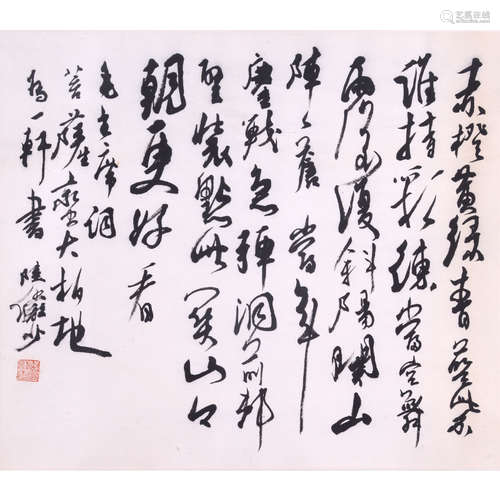 赤橙黃綠青藍紫
誰持彩練當空舞
雨後復斜陽關山
陣々蒼 當年
鏖戰急彈洞前村
壁裝點此關山今
朝更好看
毛主席詞
菩薩蠻大柏地
為一軒書 陸儼少
艺狐在线